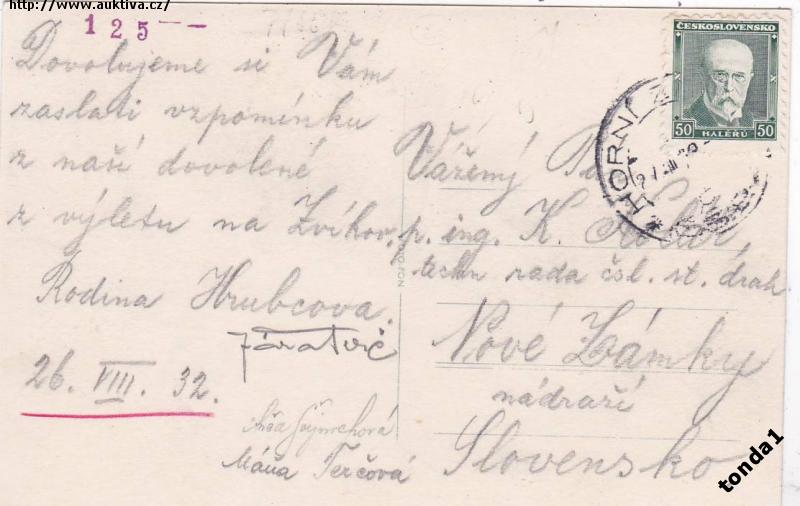 http://www.auktiva.cz/
125--
Dovolujeme si Vám
zaslati vzpomínku
z naší dovolené
z výletu na Zvíkov.
Rodina Hrubcova.
26. VIII. 32.
Máňa Terčová
ČESKOSLOVENSKO
50 HALÉŘŮ 50
HORNÍ
Vážený
p. ing. K. Kolář,
techn rada čsl. st. drah
Nové Zámky
nádraží
Slovensko
tonda1